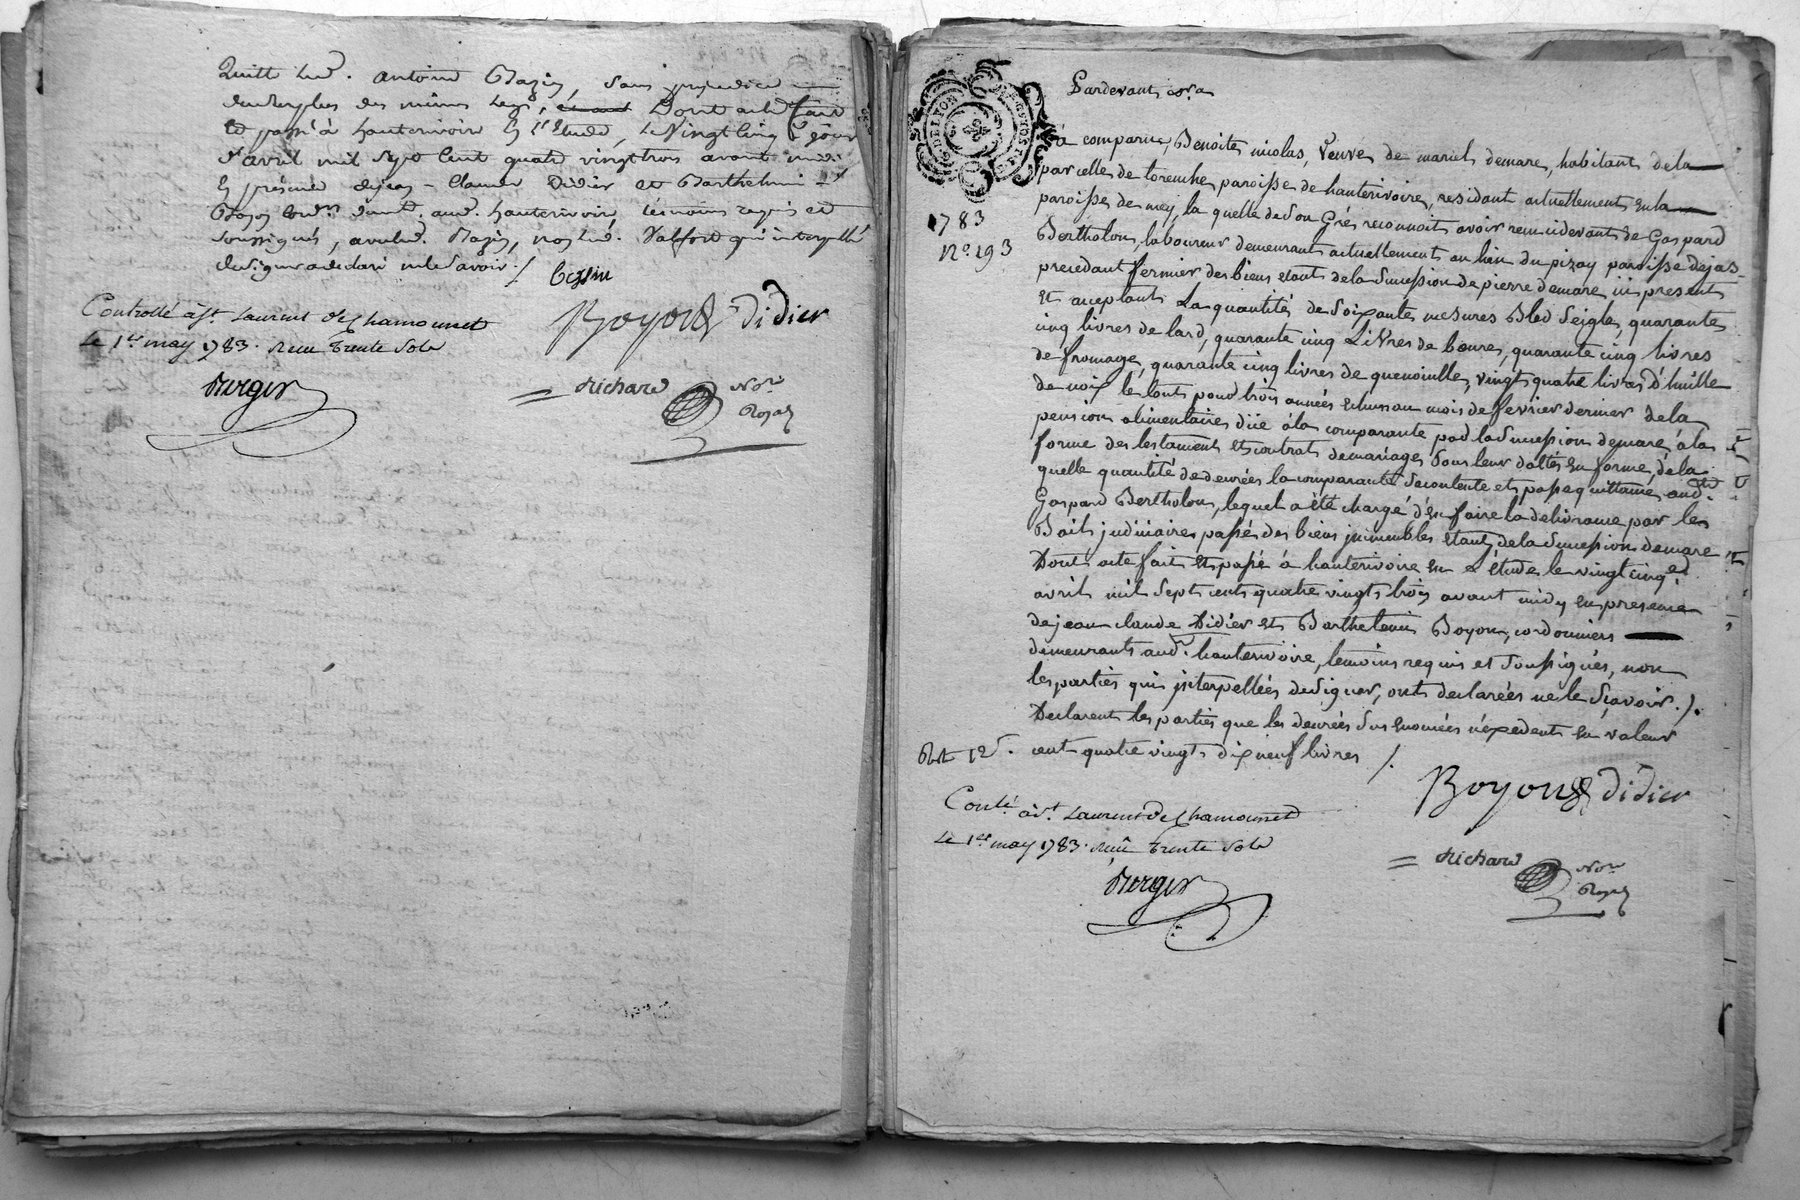 quitte led. antoine Mazis, sans prejudice
des mêmes legs, Dont acte fait
et passé à hauterivoire En l'Etude, le vingt cinq e. jour
d'avril mil Sept Cent quatre vingt trois avant midi
En présence de jean - Claude Didier et Barthelemi
Boyon cordrs. aud. hauterivoire, témoins requis et
soussignés, avec led. Mazis, non led. Valfort qui interpellé
de signer a déclaré ne le savoir ./.
Boyon Didier
Controllé à St. Laurent de Chamousset
Le 1er may 1783. Reçu trente Sols
Berger
= Richard Nore
Royal
G. DE LYON
Pardevant
1783
No. 193
a comparue, Benoite nicolas, Veuve de demare, habitant de la
parcelle de torenche paroisse de hauterivoire, residant actuellement en la
paroisse de mey, la quelle de son Gré reconnoit avoir reçu cidevant de Gaspard
Bertholon, laboureur demeurant actuellement au lieu du pizay paroisse dejas
precedant fermier des biens etant de la succession de pierre demare, ici present
Et acceptant La quantité de Soixante mesures Bled Seigle, quarante
cinq livres de lard, quarante cinq Livres de beure, quarante cinq livres
de fromage, quarante cinq livres de quenouille, vingt quatre livres D'huille
de noix le tout pour trois années echues au mois de fevrier dernier de la
pension alimentaire düe à la comparante par la Succession demare, à la
forme des testament et contrat de mariage, Sous leur datte en forme, de la
quelle quantité de denrées la comparante Se contente et passe quittance, audt.
Gaspard Bertholon, lequel a été chargé d'en faire la delivrance par le
Bail judiciaire passé des biens immeubles etant de la Succession demare
Dont acte fait et passé à hauterivoire en L'étude le vingt cinq
avril mil Sept cents quatre vingts trois avant midy en presence
de jean claude Didier et Barthelemi Boyon, cordonniers
demeurants aud. hauterivoire, temoins requis et Soussignés, non
les parties qui interpellées de signer, ont declarées ne le Sçavoir ./.
Declarent les parties que les denrées Sus enoncées n'excedent en valeur
cent quatre vingts dix neuf livres ./.
Boyon Didier
Contlé. à St. Laurent de Chamousset
Le 1er may 1783. Reçu trente Sols
Berger
= Richard Nore
Royal